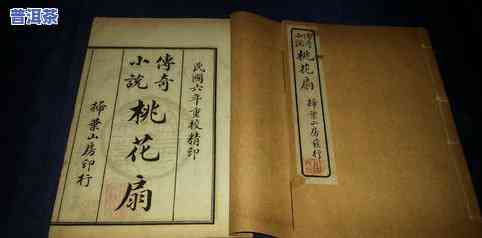 普洱茶
民國六年重校精印
傳奇
小說
桃花扇
掃葉山房印行
傳奇
小說
桃花扇
掃葉山房發行